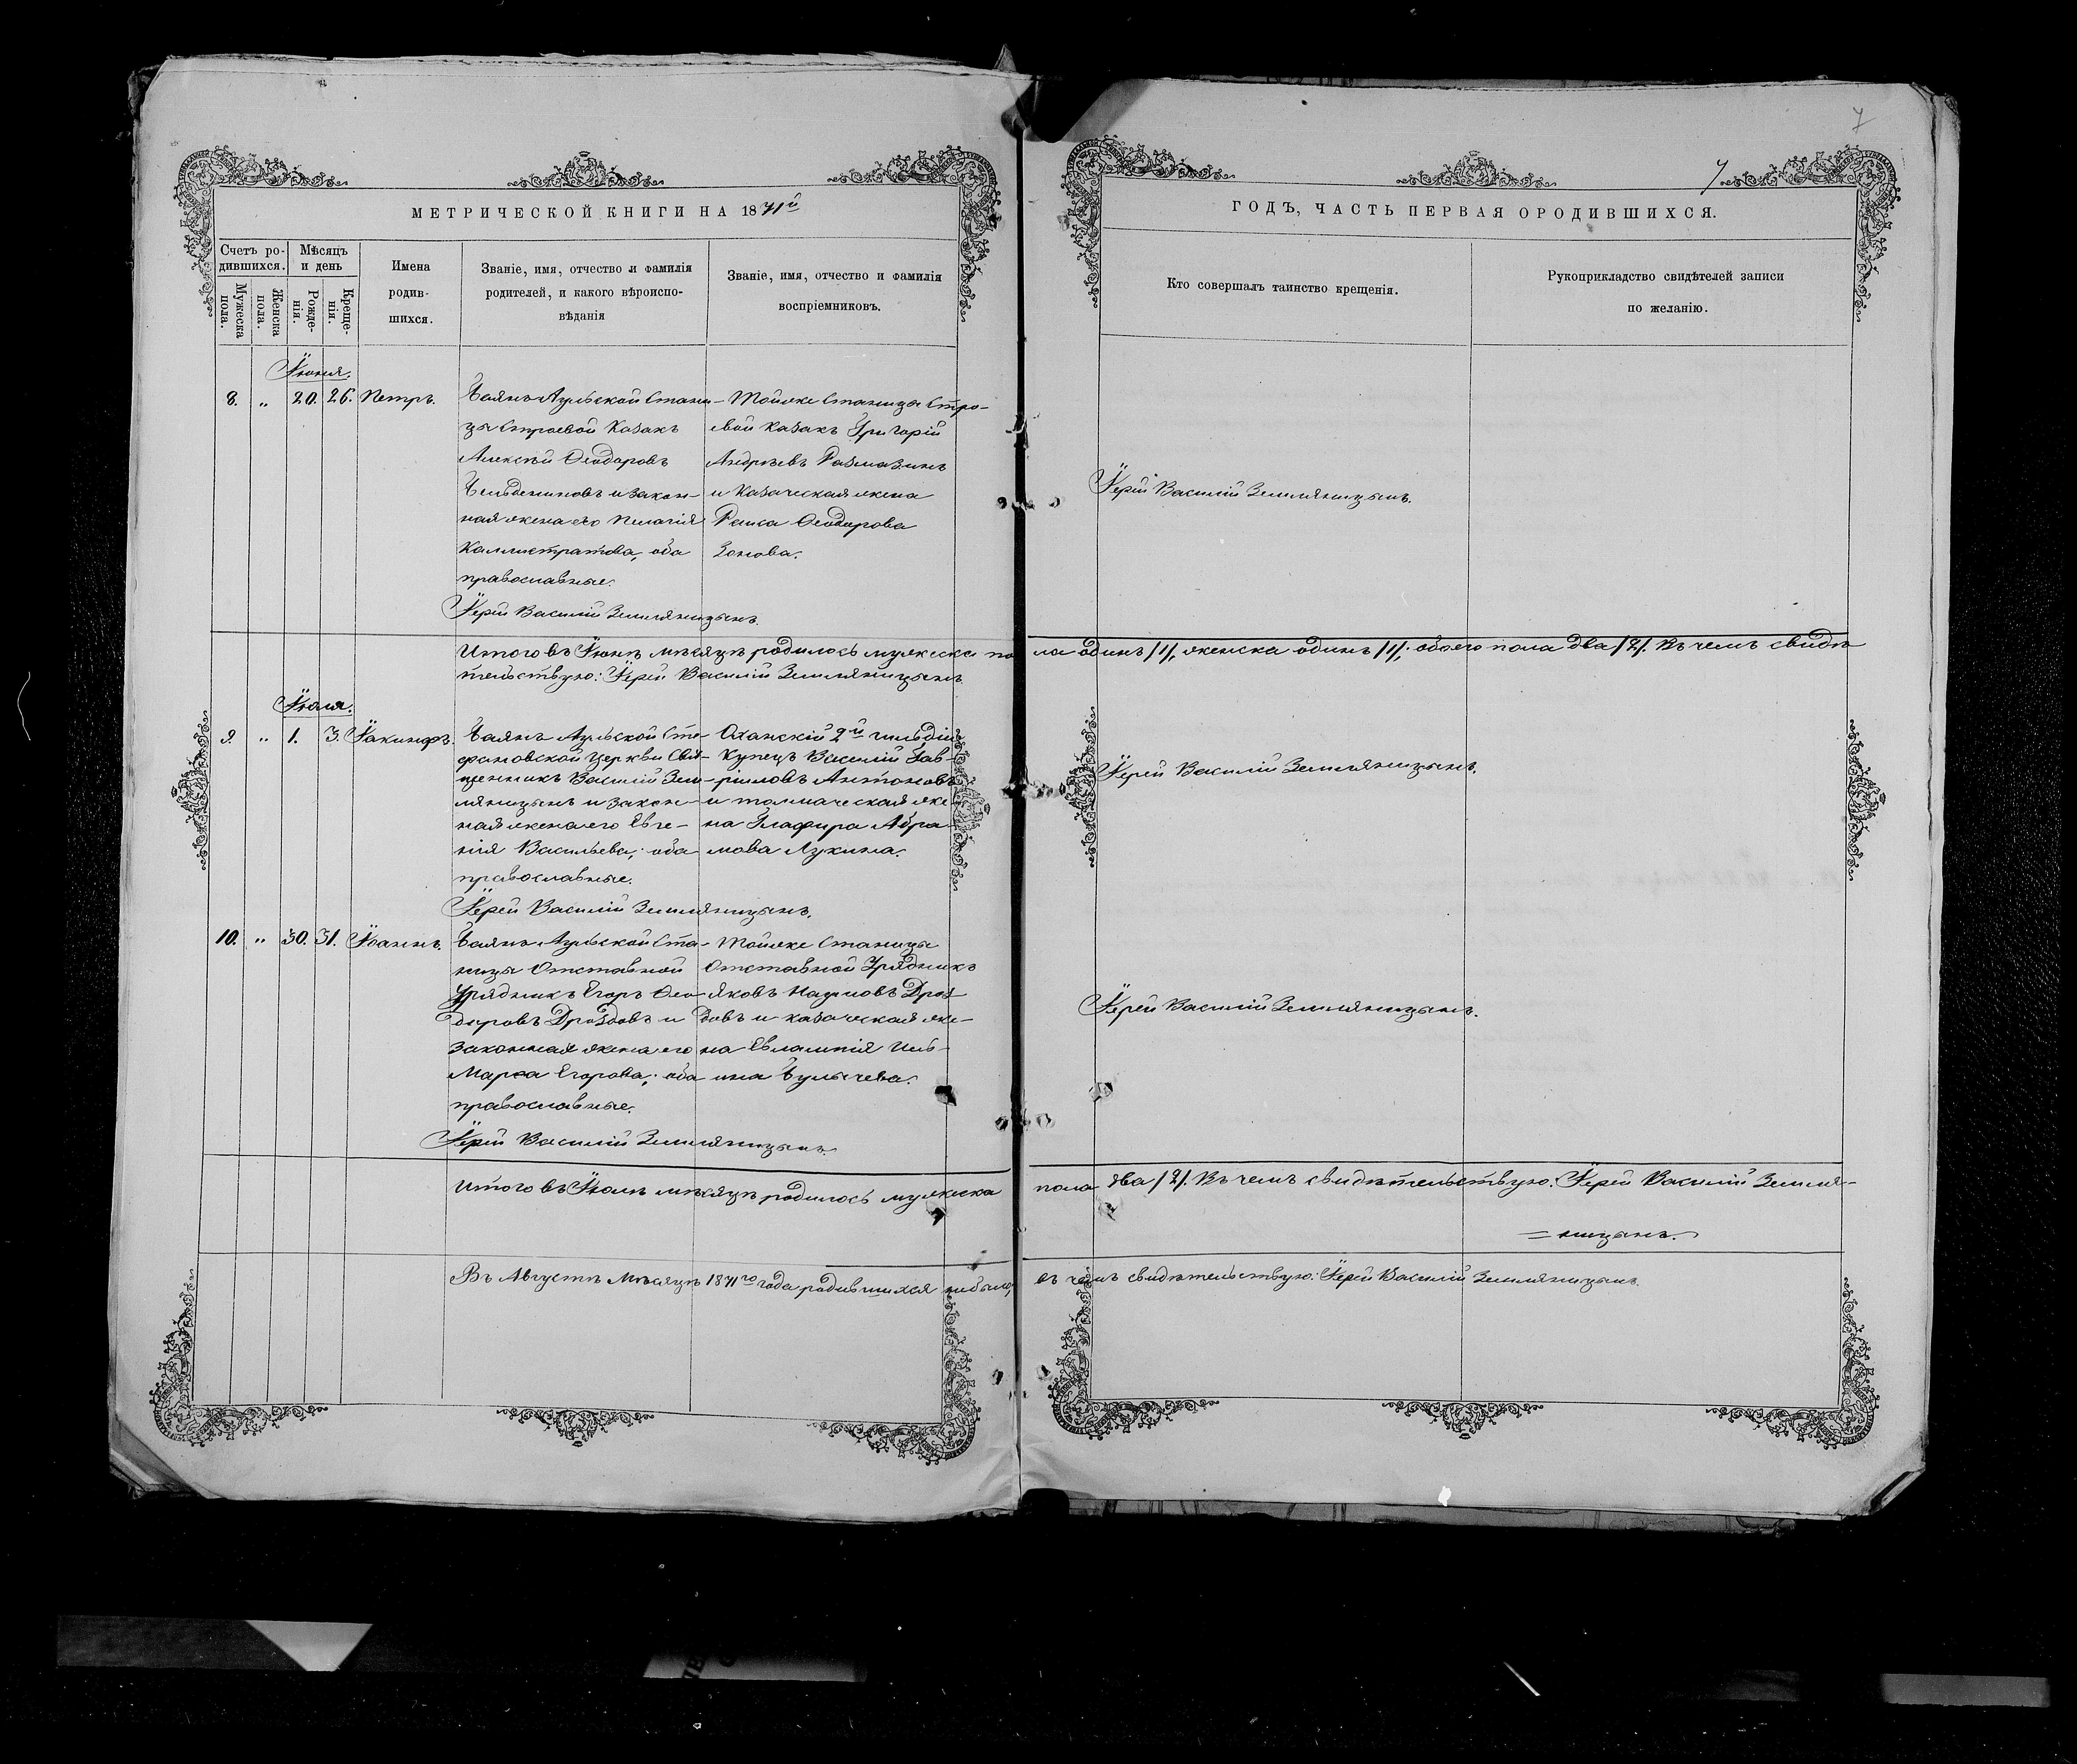 7
7
МЕТРИЧЕСКОЙ КНИГИ НА 1871й
ГОДЪ, ЧАСТЬ ПЕРВАЯ О РОДИВШИХСЯ.
Счетъ ро-
дившихся.
Мужеска
пола.
Женска
пола.
Мѣсяцъ
и день
Рожде-
нія.
Креще-
нія.
Имена
родив-
шихся.
Званіе, имя, отчество и фамилія
родителей, и какого вѣроиспо-
вѣданія
Званіе, имя, отчество и фамилія
воспріемниковъ.
Кто совершалъ таинство крещенія.
Рукоприкладство свидѣтелей записи
по желанію.
Іюня.
8. " 20. 26. Петръ.
Баянъ Аульской Стани-
цы Строевой Казакъ
Алексѣй Ѳеодоровъ
и закон-
ная жена его Пелагія
Каллистратова, оба
православные.
Іерей Василій Земляницынъ.
Тойже Станицы Стро-
евой казакъ Григорій
Андреевъ Размазинъ
и Казаческая жена
Раиса Ѳеодорова
Зонова.
Іерей Василій Земляницынъ.
Итого въ Іюнѣ мѣсяцѣ родилось мужеска по ла одинъ /1/, женска одинъ /1/; обоего пола два /2/. Въ чемъ свидѣ
тельствую: Іерей Василій Земляницынъ.
Іюля.
9. " 1. 3. Іакинфъ.
Баянъ Аульской Сте-
фановской Церкви Свя-
щенникъ Василій Зем-
ляницынъ и закон-
ная жена его Евге-
нія Васильева, оба
православные.
Іерей Василій Земляницынъ.
Оханскій 2й гильдіи
Купецъ Василій Гав-
риловъ Антоновъ
и толмаческая же
на Глафира Абра
мова Лукина.
Іерей Василій Земляницынъ.
10. " 30. 31. Іоаннъ.
Баянъ Аульской Ста-
ницы Отставной
Урядникъ Егоръ Ѳео-
доровъ Дроздовъ и
законная жена его
Марѳа Егорова, оба
православные.
Іерей Василій Земляницынъ.
Тойже Станицы
Отставной Урядникъ
Яковъ Наумовъ Дроз
довъ и казаческая же-
на Евлампія Иль-
ина Булычева.
Іерей Василій Земляницынъ.
Итого въ Іюлѣ мѣсяцѣ родилось мужеска пола два /2/. Въ чемъ свидѣтельствую: Іерей Василій Земля-
=ницынъ.
Въ Августѣ Мѣсяцѣ 1871го года родившихся небыло, въ чемъ свидѣтельствую: Іерей Василій Земляницынъ.